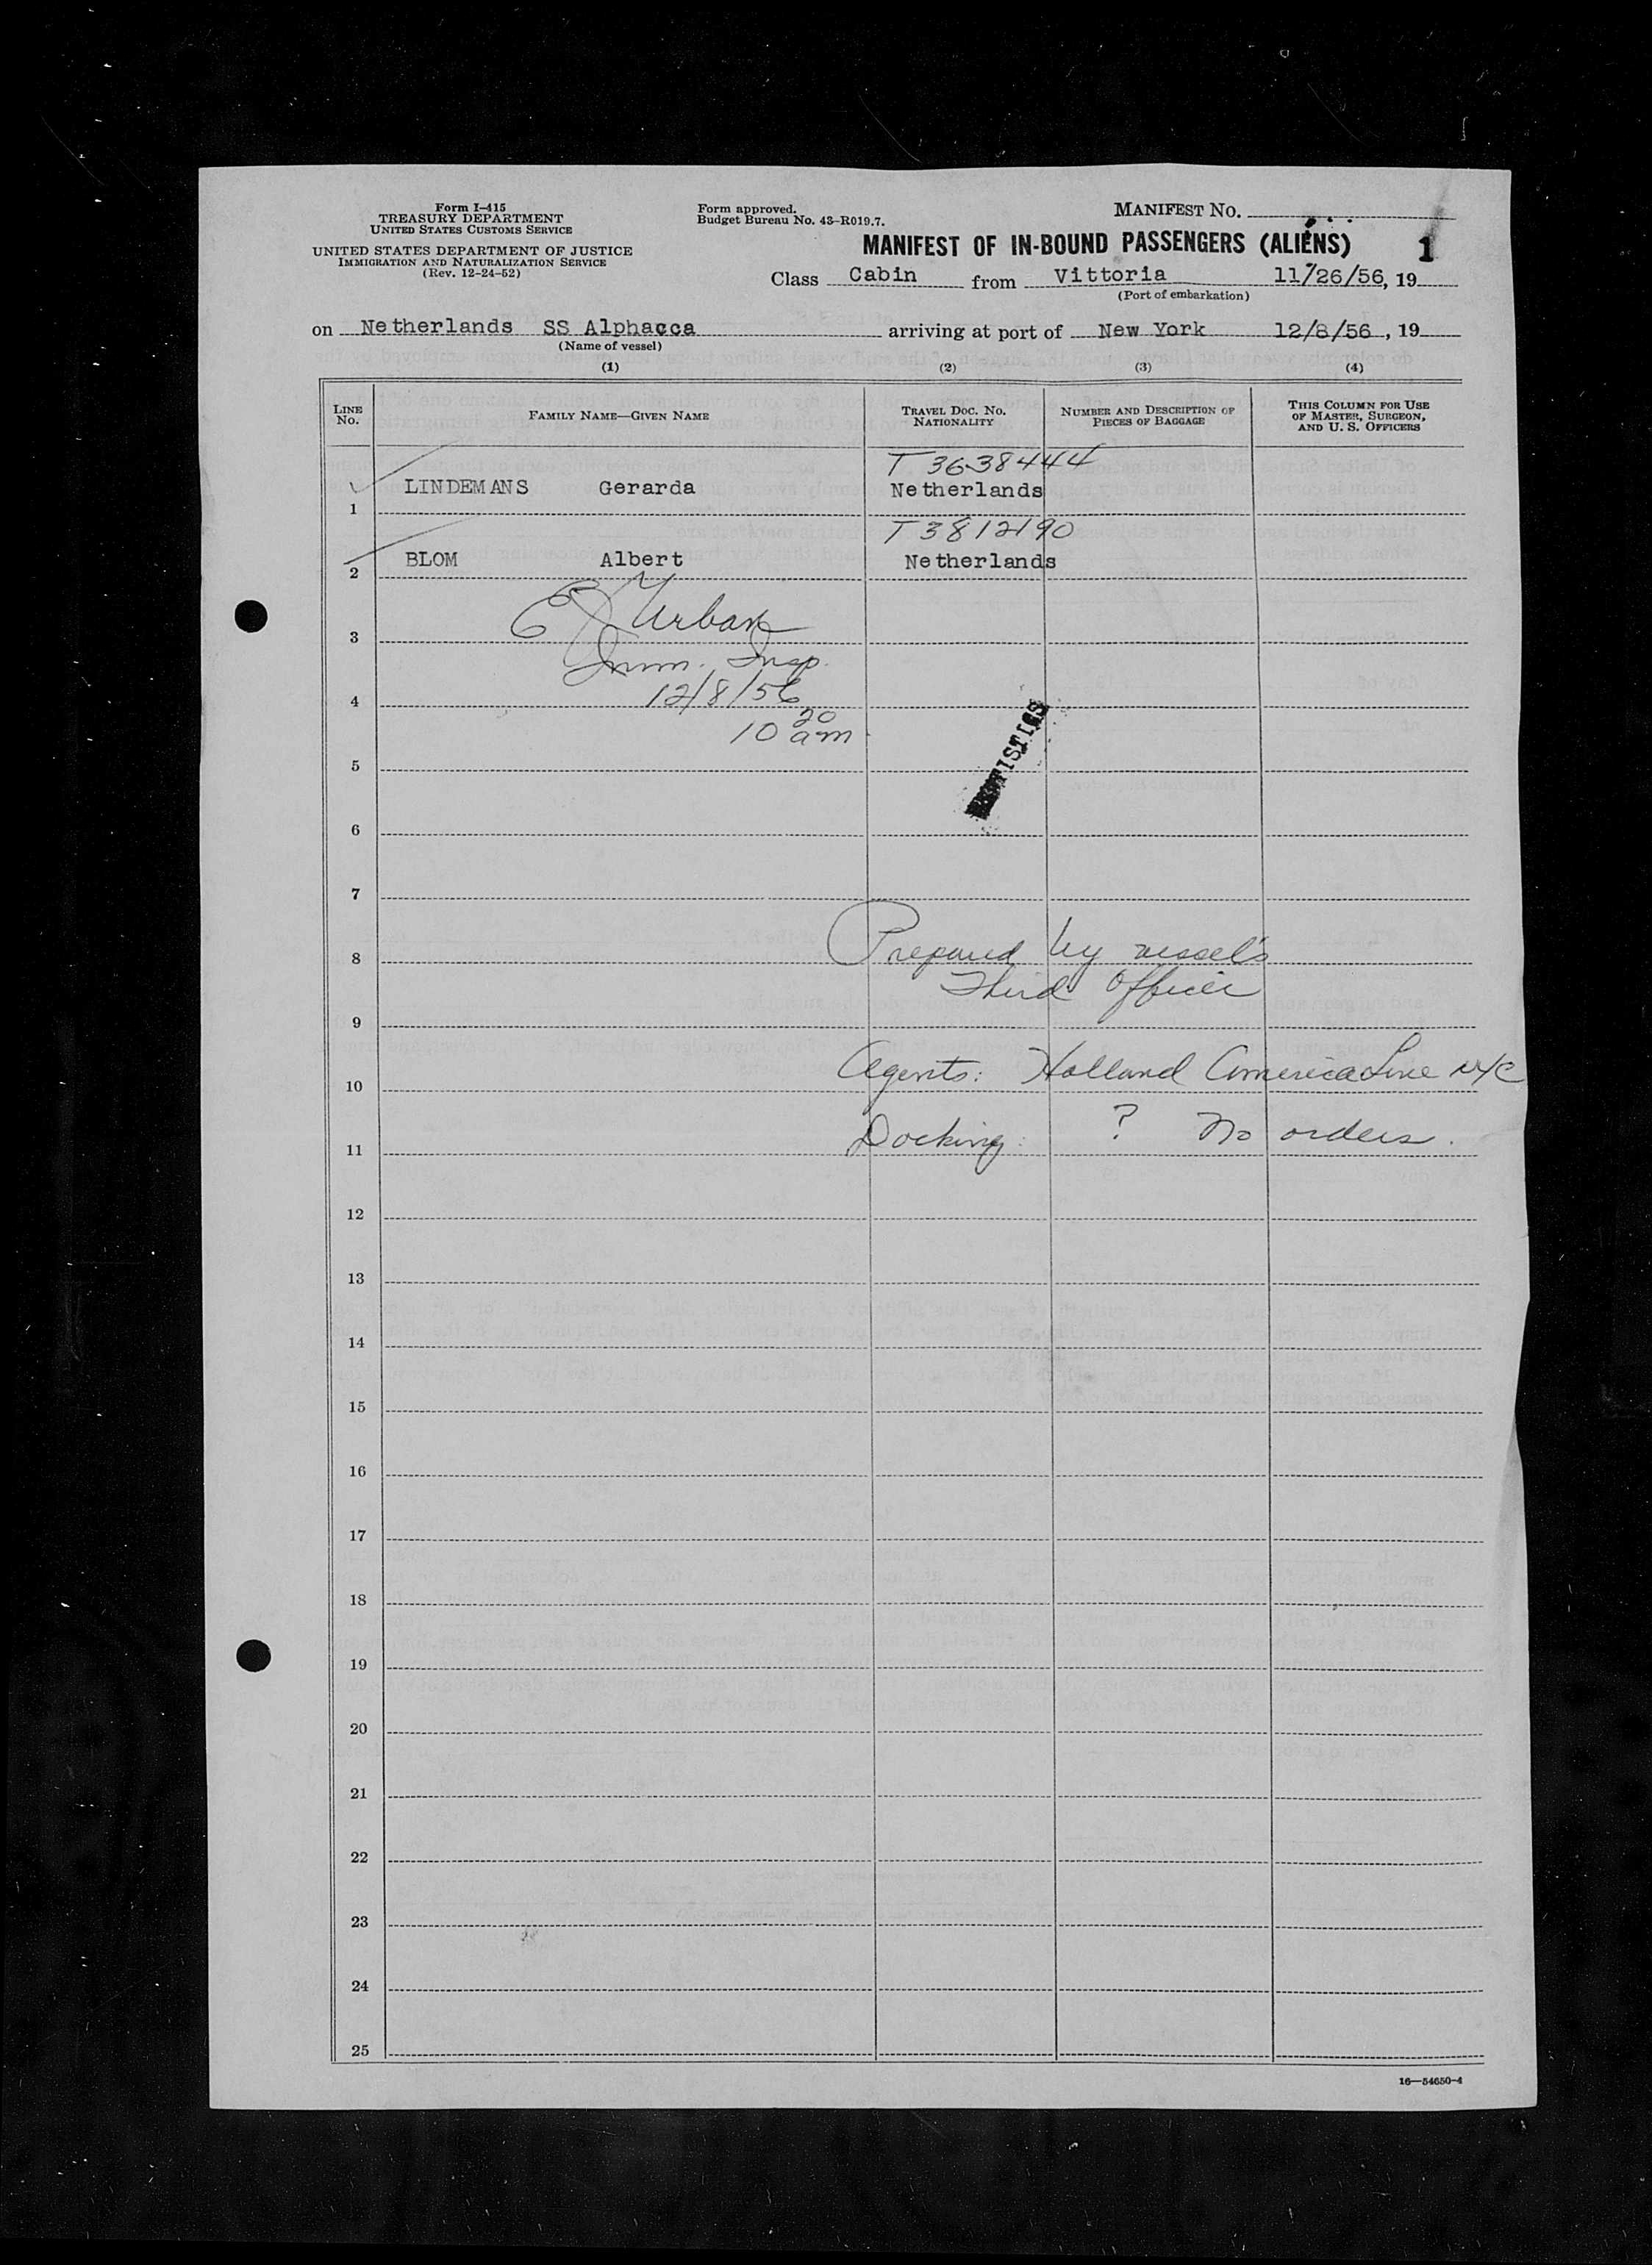 Form I-415
TREASURY DEPARTMENT
UNITED STATES CUSTOMS SERVICE
UNITED STATES DEPARTMENT OF JUSTICE
IMMIGRATION AND NATURALIZATION SERVICE
(Rev. 12-24-52)
Form approved.
Budget Bureau No. 43-R019.7.
MANIFEST NO.
MANIFEST OF IN-BOUND PASSENGERS (ALIENS) 1
Class Cabin from Vittoria 11/26/56, 19
(Port of embarkation)
on Netherlands SS Alphacca arriving at port of New York 12/8/56, 19
(Name of vessel)
(1) (2) (3) (4)
LINE NO. FAMILY NAME—GIVEN NAME TRAVEL DOC. NO. NATIONALITY NUMBER AND DESCRIPTION OF PIECES OF BAGGAGE THIS COLUMN FOR USE OF MASTER, SURGEON, AND U. S. OFFICERS
T 3638444
LINDEMANS Gerarda Netherlands
1
T 3812190
BLOM Albert Netherlands
2
Urban
3
Imm. Insp.
12/8/56
4
10 20 am
5
6
7
Prepared by vessel's
8
Third Officer
9
Agents: Holland America Line NYC
10
Docking: ? No orders.
11
12
13
14
15
16
17
18
19
20
21
22
23
24
25
16—54650-4